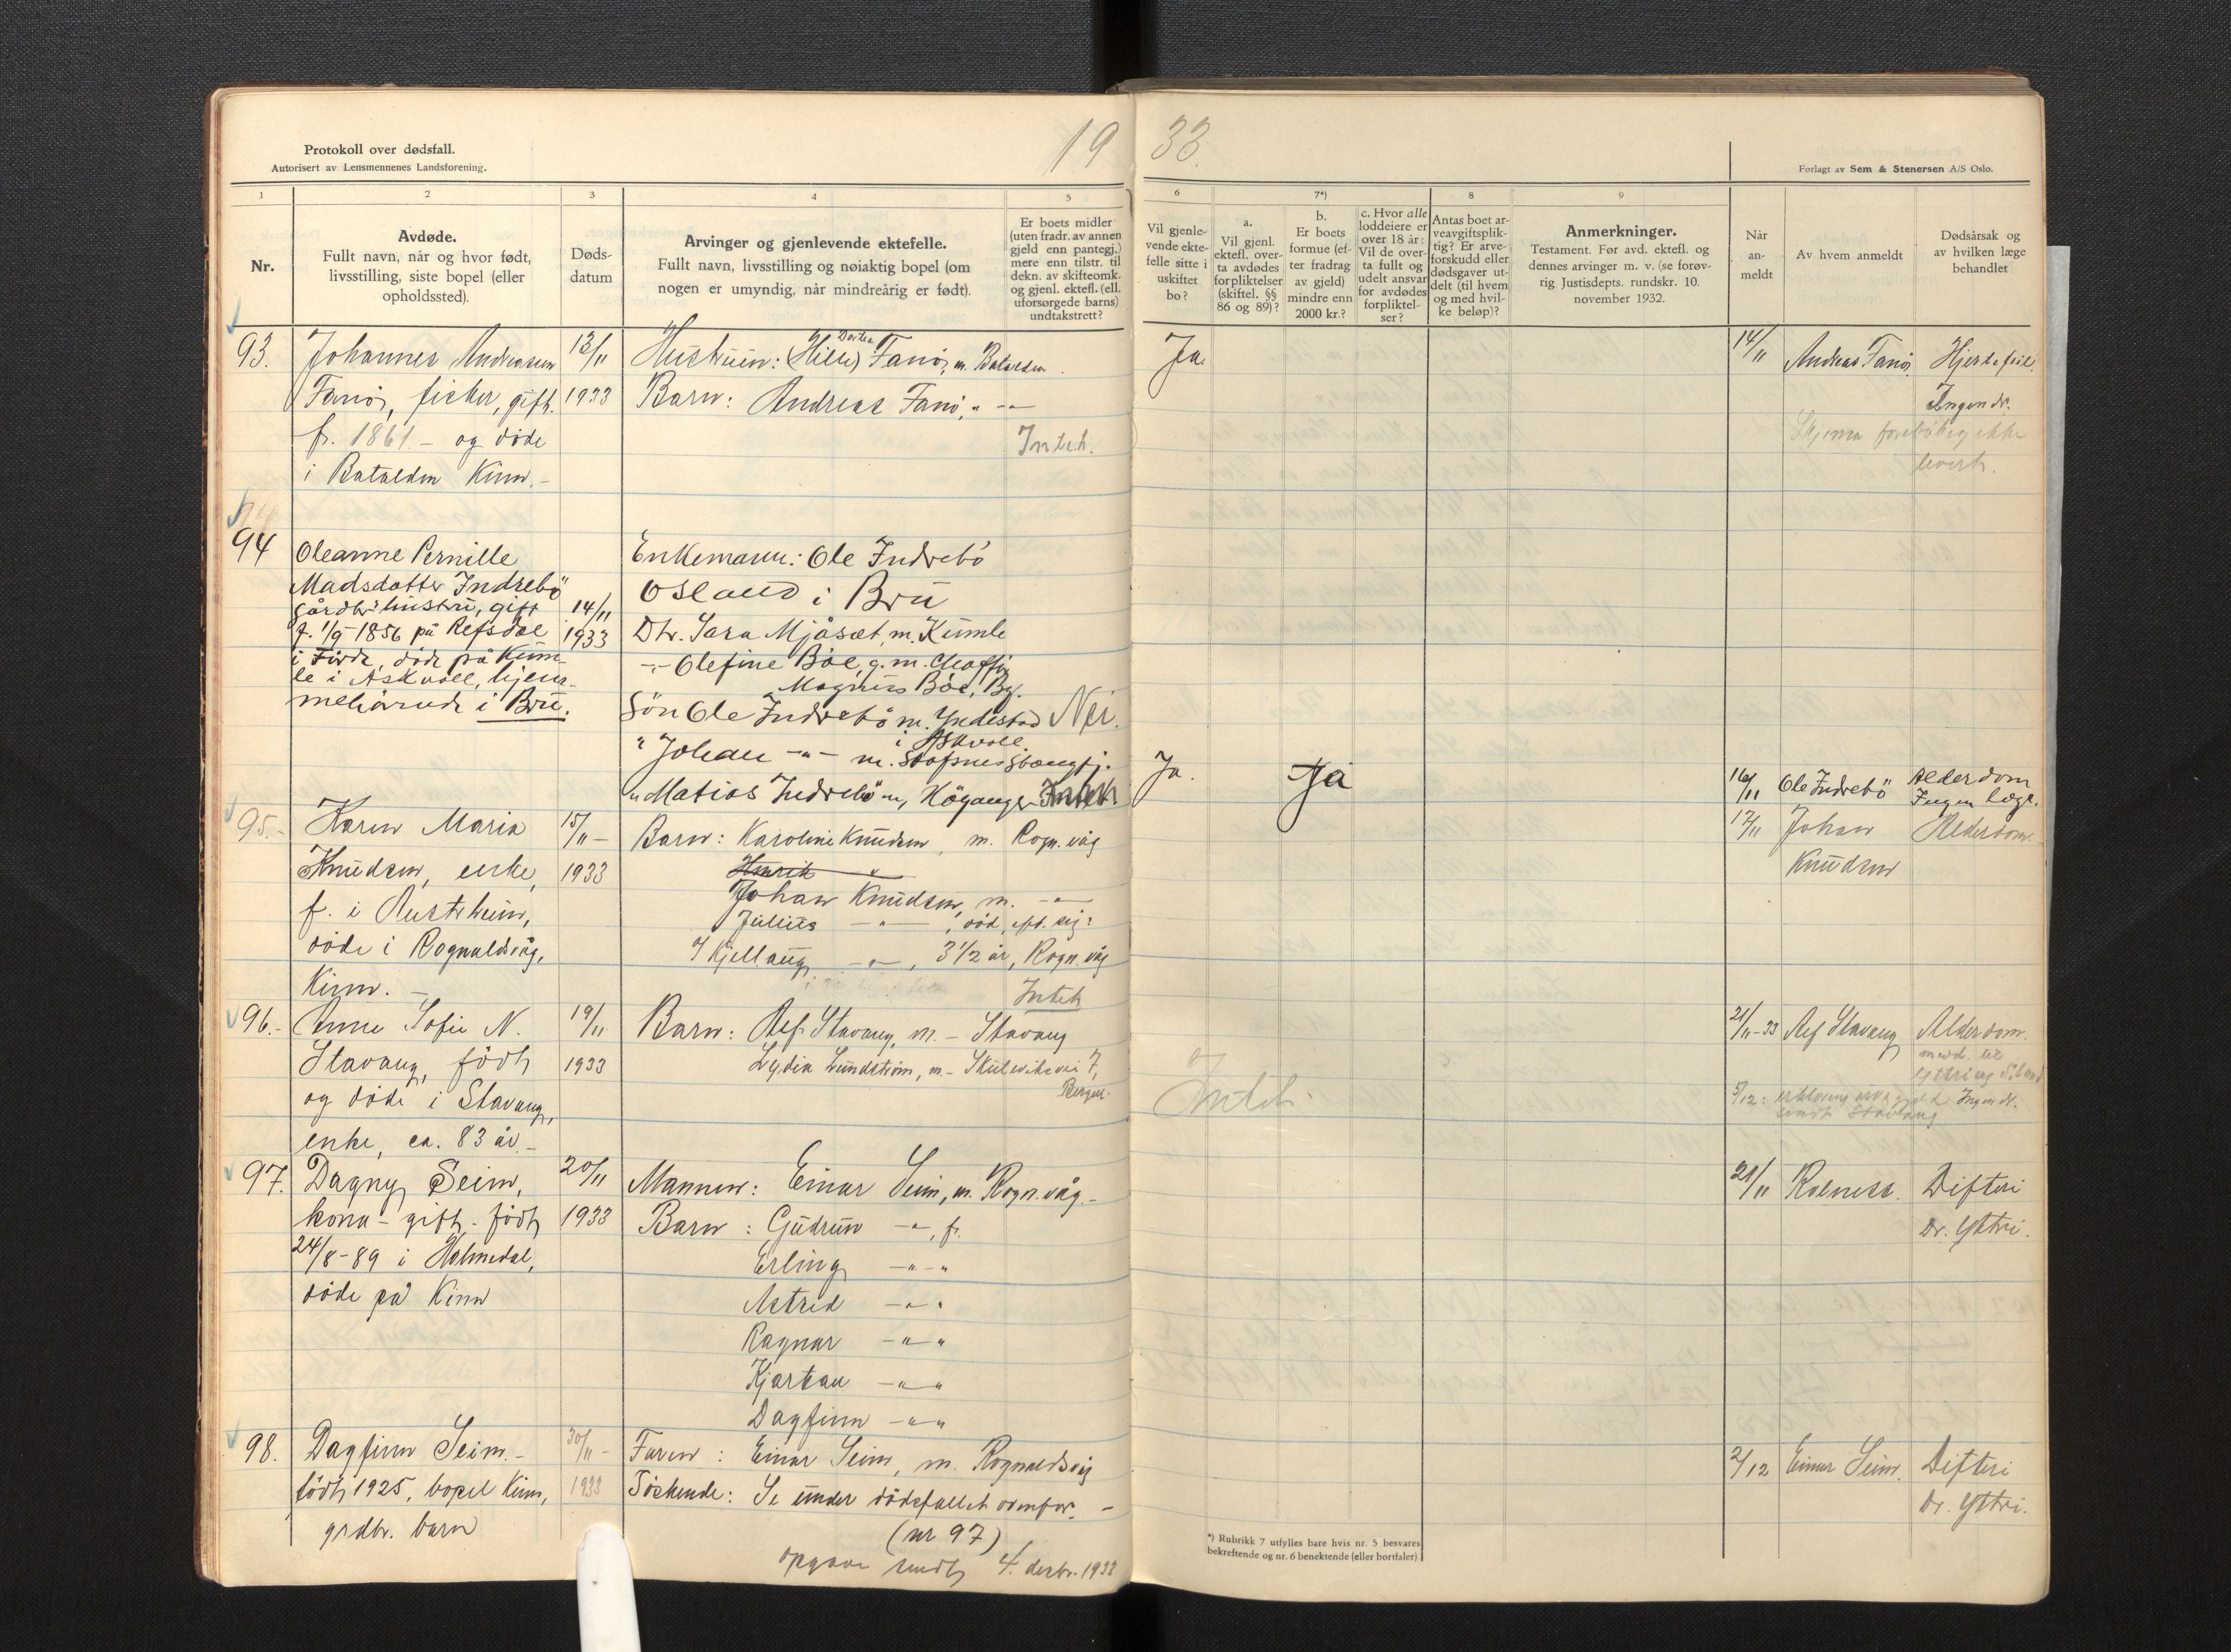 Protokoll over dødsfall.
Autorisert av Lensmennenes Landsforening.
19
1
2
3
4
5
Nr.
Avdøde.
Fullt navn, når og hvor født,
livsstilling, siste bopel (eller
opholdssted).
Døds-
datum
Arvinger og gjenlevende ektefelle.
Fullt navn, livsstilling og nøiaktig bopel (om
nogen er umyndig, når mindreårig er født).
Er boets midler
(uten fradr. av annen
gjeld enn pantegj.)
mere enn tilstr. til
dekn. av skifteomk.
og gjenl. ektefl. (ell.
uforsørgede barns)
undtakstrett?
93. Johannes Andreasen 13/11 Hustruen: (Hille) Dortea Fanø, m. Batalden
Fanø, fisker, gift. 1933 Barn: Andreas Fanø, " -"-
f. 1861 - og døde
Intet.
i Batalden Kinn. -
94 Oleanne Pernille Enkemann: Ole Indrebö
Madsdatter Indrebö Osland i Bru
gårdbr. hustru, gift 14/11
f. 1/9-1856 på Refsdal 1933 Dtr. Sara Mjåset, m. Kumle
i Førde, døde på Kum- -"- Olefine Böe, g. m.
le i Askvoll, hjem- Magnus Böe, Bg.
mehörende i Bru. Sön Ole Indrebö m. Yndestad Nei.
i Askvoll.
" Johan -"- m. Stafsnes
" Matias Indrebö m, Höyanger Intet
95.- Karen Maria 15/11- Barn: Karoline Knudsen, m. Rogn.våg
Knudsen, enke, 1933 Henrik "
Johan Knudsen, m. -"-
f. i Austrheim, Julius -"-, död,
döde i Rognaldsvåg, Kjellaug -"-, 3 1/2 år, Rogn.våg
Kinn. - Intet
96.- Anne Sofie N. 19/11 Barn: Alf Stavang, m. - Stavang
Stavang, födt 1933 Lydia Lundström, m.- 7,
og döde i Stavang, Bergen.
enke, ca. 83 år.-
97. Dagny Seim, 20/11 Mannen: Einar Seim, m. Rogn.våg.-
kona - gift - födt 1933 Barn: Gudrun -"-, f.
24/8-89 i Holmedal, Erling -"- "
döde på Kinn Astrid -"- "
Ragnar -"- "
Kjartan -"- "
Dagfinn -"- "
98. Dagfinn Seim.- 30/11- Faren: Einar Seim, m. Rognaldsvåg
födt 1925, bopel Kinn, 1933 Söskende: Se under dödsfallet ovenfor. -
grdbr. barn (nr 97)
opgave sendt 4. desbr. 1933
33.
Forlagt av Sem & Stenersen A/S Oslo.
6
7*)
8
9
Vil gjenle-
vende ekte-
felle sitte i
uskiftet
bo?
a.
Vil gjenl.
ektefl. over-
ta avdødes
forpliktelser
(skiftel. §§
86 og 89)?
b.
Er boets
formue (ef-
ter fradrag
av gjeld)
mindre enn
2000 kr.?
c. Hvor alle
loddeiere er
over 18 år:
Vil de over-
ta fullt og
udelt ansvar
for avdødes
forpliktel-
ser?
Antas boet ar-
veavgiftsplik-
tig? Er arve-
forskudd eller
dødsgaver ut-
delt (til hvem
og med hvil-
ke beløp)?
Anmerkninger.
Testament. Før avd. ektefl. og
dennes arvinger m. v. (se forøv-
rig Justisdepts. rundskr. 10.
november 1932.
Når
an-
meldt
Av hvem anmeldt
Dødsårsak og
av hvilken læge
behandlet
Ja. 14/11 Andreas Fanø. Hjertefeil.
Ingen dr.
Skjema foreløbig ikke
levert.
Ja. Ja 16/11 Ole Indrebö Alderdom
Ingen læge.
17/11 Johan Alderdom.
Knudsen
21/11-33 Alf Stavang Alderdom.
Intet.
5/12: Ingen dr.
sendt Stavang
21/11 Rolness. Difteri
Dr. Yttri.
2/12 Einar Seim. Difteri
Dr. Yttri.
*) Rubrikk 7 utfylles bare hvis nr. 5 besvares
bekreftende og nr. 6 benektende (eller bortfaler).